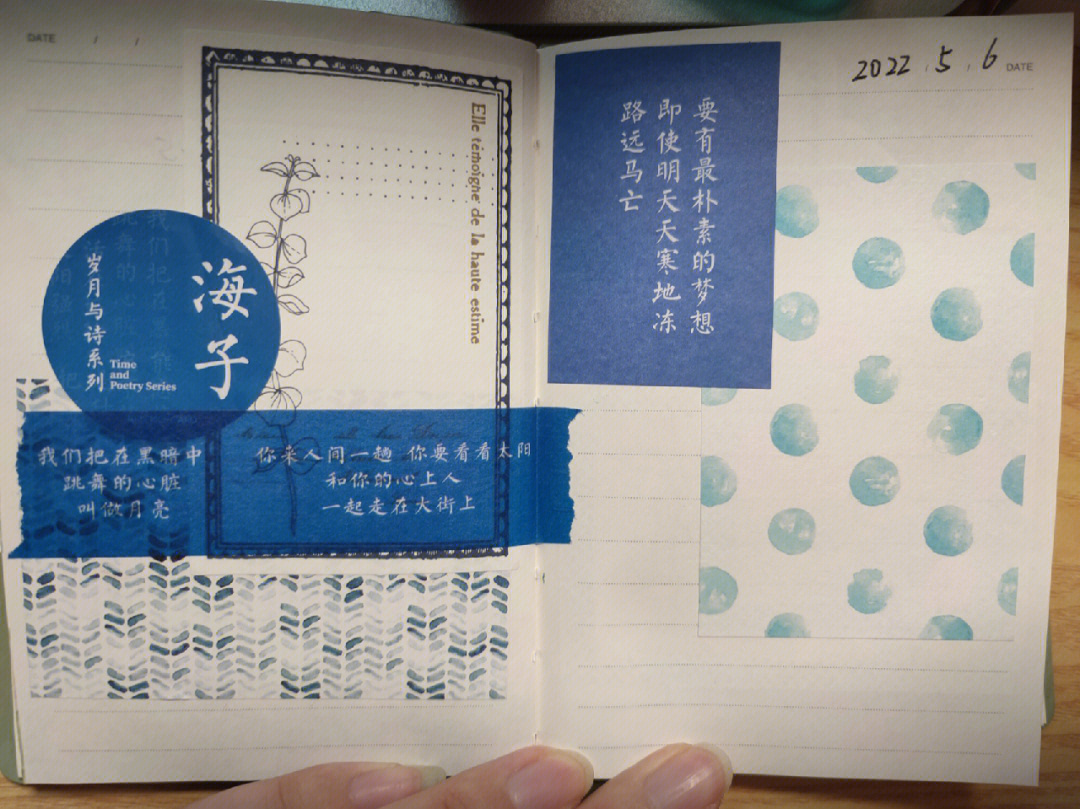 DATE / /
Elle témoigne de la haute estime
海子
岁月与诗系列
Time
and
Poetry Series
我们把在黑暗中
跳舞的心脏
叫做月亮
你来人间一趟 你要看看太阳
和你的心上人
一起走在大街上
2022 / 5 / 6 DATE
要有最朴素的梦想
即使明天天寒地冻
路远马亡